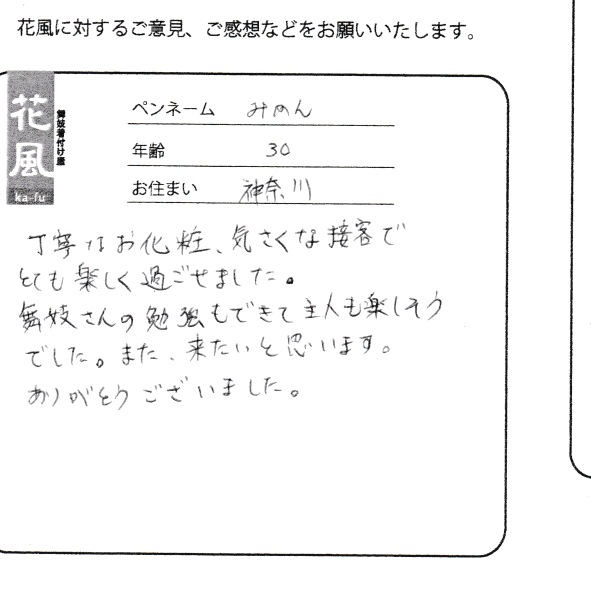 花風に対するご意見、ご感想などをお願いいたします。
花風
舞妓着付け屋
ka-fu
ペンネーム みめん
年齢 30
お住まい 神奈川
丁寧なお化粧、気さくな接客で
とても楽しく過ごせました。
舞妓さんの勉強もできて主人も楽しそう
でした。また、来たいと思います。
ありがとうございました。